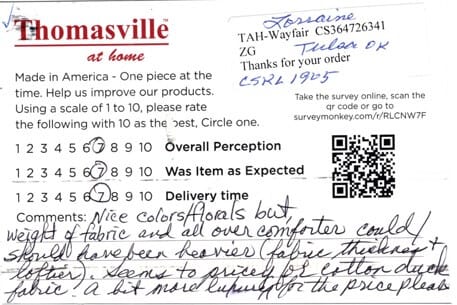 Thomasville™
at home
Lorraine
TAH-Wayfair CS364726341
ZG Tulsa OK
Thanks for your order
CSRL 1905
Made in America - One piece at the
time. Help us improve our products.
Using a scale of 1 to 10, please rate
the following with 10 as the best, Circle one.
Take the survey online, scan the
qr code or go to
surveymonkey.com/r/RLCNW7F
1 2 3 4 5 6 7 8 9 10 Overall Perception
1 2 3 4 5 6 7 8 9 10 Was Item as Expected
1 2 3 4 5 6 7 8 9 10 Delivery time
Comments: Nice colors/florals but,
weight of fabric and all over comforter could/
should have been heavier (fabric, thickness +
loftier). Seems to pricey for cotton duck
fabric. A bit more luxury for the price please